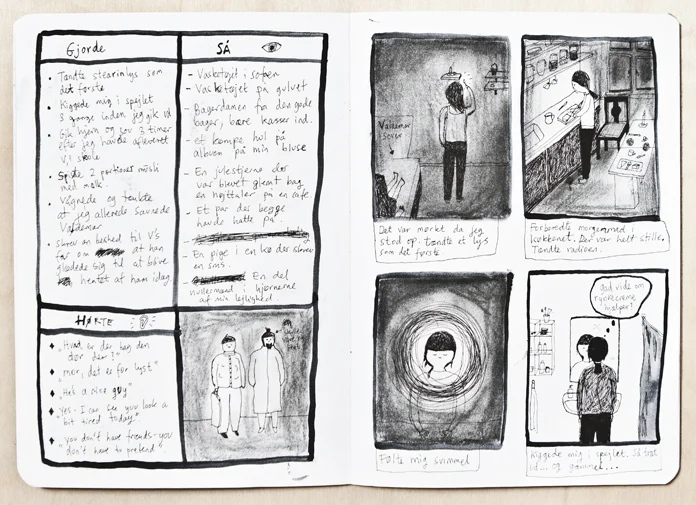 Gjorde
• Tændte stearinlys som
det første
• Kiggede mig i spejlet
3 gange inden jeg gik ud
• Gik hjem og sov 3 timer
efter jeg havde afleveret
V i skole
• Spiste 2 portioner müsli
med mælk.
• Vågnede og tænkte
at jeg allerede savnede
Valdemar
skrev en besked til V's
far om at han
glædede sig til at blive
hentet af ham idag.
SÅ
- Vasketøjet i sofaen
- Vasketøjet på gulvet
- Bagerdamen fra den gode
bager, bære kasser ind.
- et kæmpe hul på
albuen på min bluse
- En julestjerne der
var blevet glemt bag
en højttaler på en café.
- Et par der begge
havde hatte på.
- En pige i en kø der skrev
en sms.
En del
nullermænd i hjørnerne
af min lejlighed
HØRTE
♦ "Hvad er der bag den
dør der?"
♦ "mor, det er for lyst"
♦ "He's a nice guy"
♦ "Yes - I can see you look a
bit tired today"
♦ "you don't have friends - you
don't have to pretend"
Valdemar
sover
Det var mørkt da jeg
stod op. tændte et lys
som det første
Forberedte morgenmad i
køkkenet. Der var helt stille.
Tændte radioen.
Følte mig svimmel
gad vide om
rynkecreme
hjælper?
Kiggede mig i spejlet. Så træt
ud... og gammel...